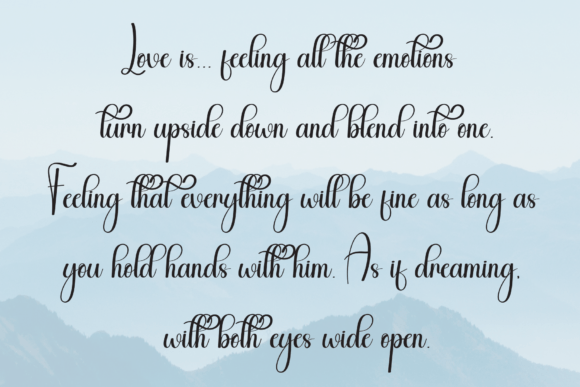 Love is... feeling all the emotions
turn upside down and blend into one.
Feeling that everything will be fine as long as
you hold hands with him. As if dreaming,
with both eyes wide open.